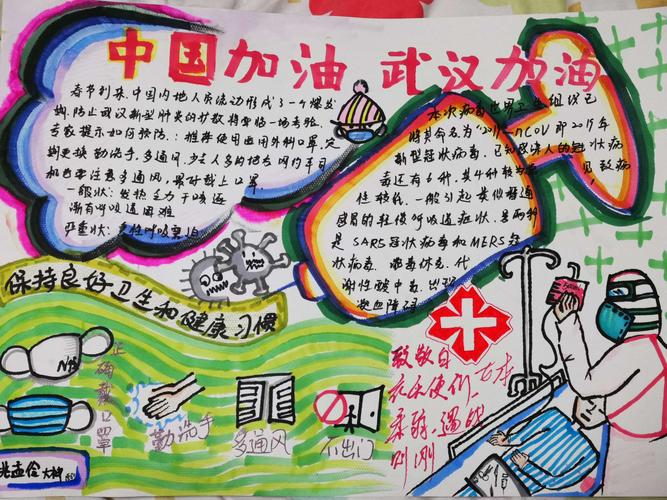 中国加油 武汉加油
春节到来,中国内地人员流动形成了一个爆发
期,防止武汉新型肺炎的扩散将面临一场考验。
专家提示如何预防:推荐使用医用外科口罩,定
期更换,勤洗手,多通风,少去人多的地方
也要注意多通风,最好戴上口罩
一般症状:发热 乏力 干咳 逐
渐有呼吸道困难
严重状:
本次病毒世界卫生组织已
将其命名为“2019-nCOV即2019年
新型冠状病毒,已知感染人的冠状病
毒还有6种,其4种较为常见致病
性较低,一般引起类似普通
感冒的轻微呼吸道症状,另两种
是SARS冠状病毒和MERS冠
状病毒,脓毒休克,代
谢性酸中毒,出现
凝血障碍
保持良好卫生和健康习惯
N95
正确戴口罩
勤洗手
多通风
不出门
致敬白
衣天使们,
柔弱,遇战
则刚